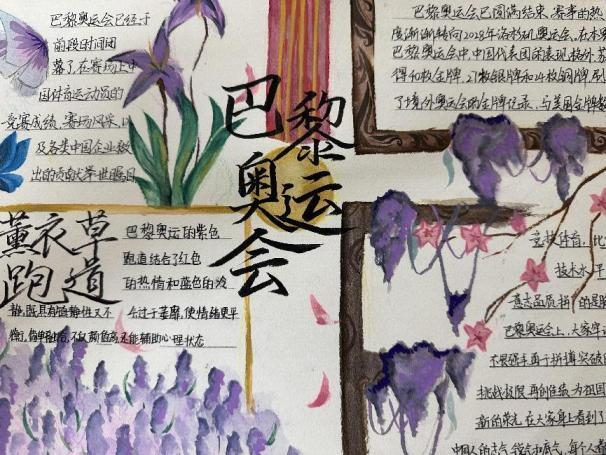 巴黎奥运会已经于
前段时间闭
幕了,在赛场上中
国体育运动员的
竞赛成绩、赛场风采,以
及各类中国企业做
出的贡献大举世瞩目
巴黎奥运会
巴黎奥运会已圆满结束,赛事的热
度渐渐转向2028年洛杉矶奥运会,在本
巴黎奥运会中,中国代表团表现格外
得40枚金牌,27枚银牌和24枚铜牌,刷
了境外奥运会的金牌记录,与美国金牌数
薰衣草
跑道
巴黎奥运的紫色
跑道结合了红色
的热情和蓝色的
静,既具有
会过于
使情绪更平
还能辅助心理状态
竞技体育,比
技术水平
意志品质拼的是
巴黎奥运会上,大家牢
不畏强手勇于拼搏突破
挑战极限,再创佳绩,为祖国
新的荣光,在大家身上看到了
中国人的志气、骨气和底气,每个人都